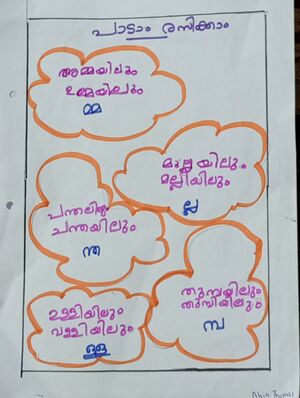 പാടാം രസിക്കാം
അമ്മയിലും
ഉമ്മയിലും
മ്മ
മുല്ലയിലും
മല്ലിയിലും
ല്ല
പന്തലിലും
ചന്തയിലും
ന്ത
തുമ്പയിലും
തുമ്പിയിലും
മ്പ
ഉള്ളിയിലും
വള്ളിയിലും
ള്ള